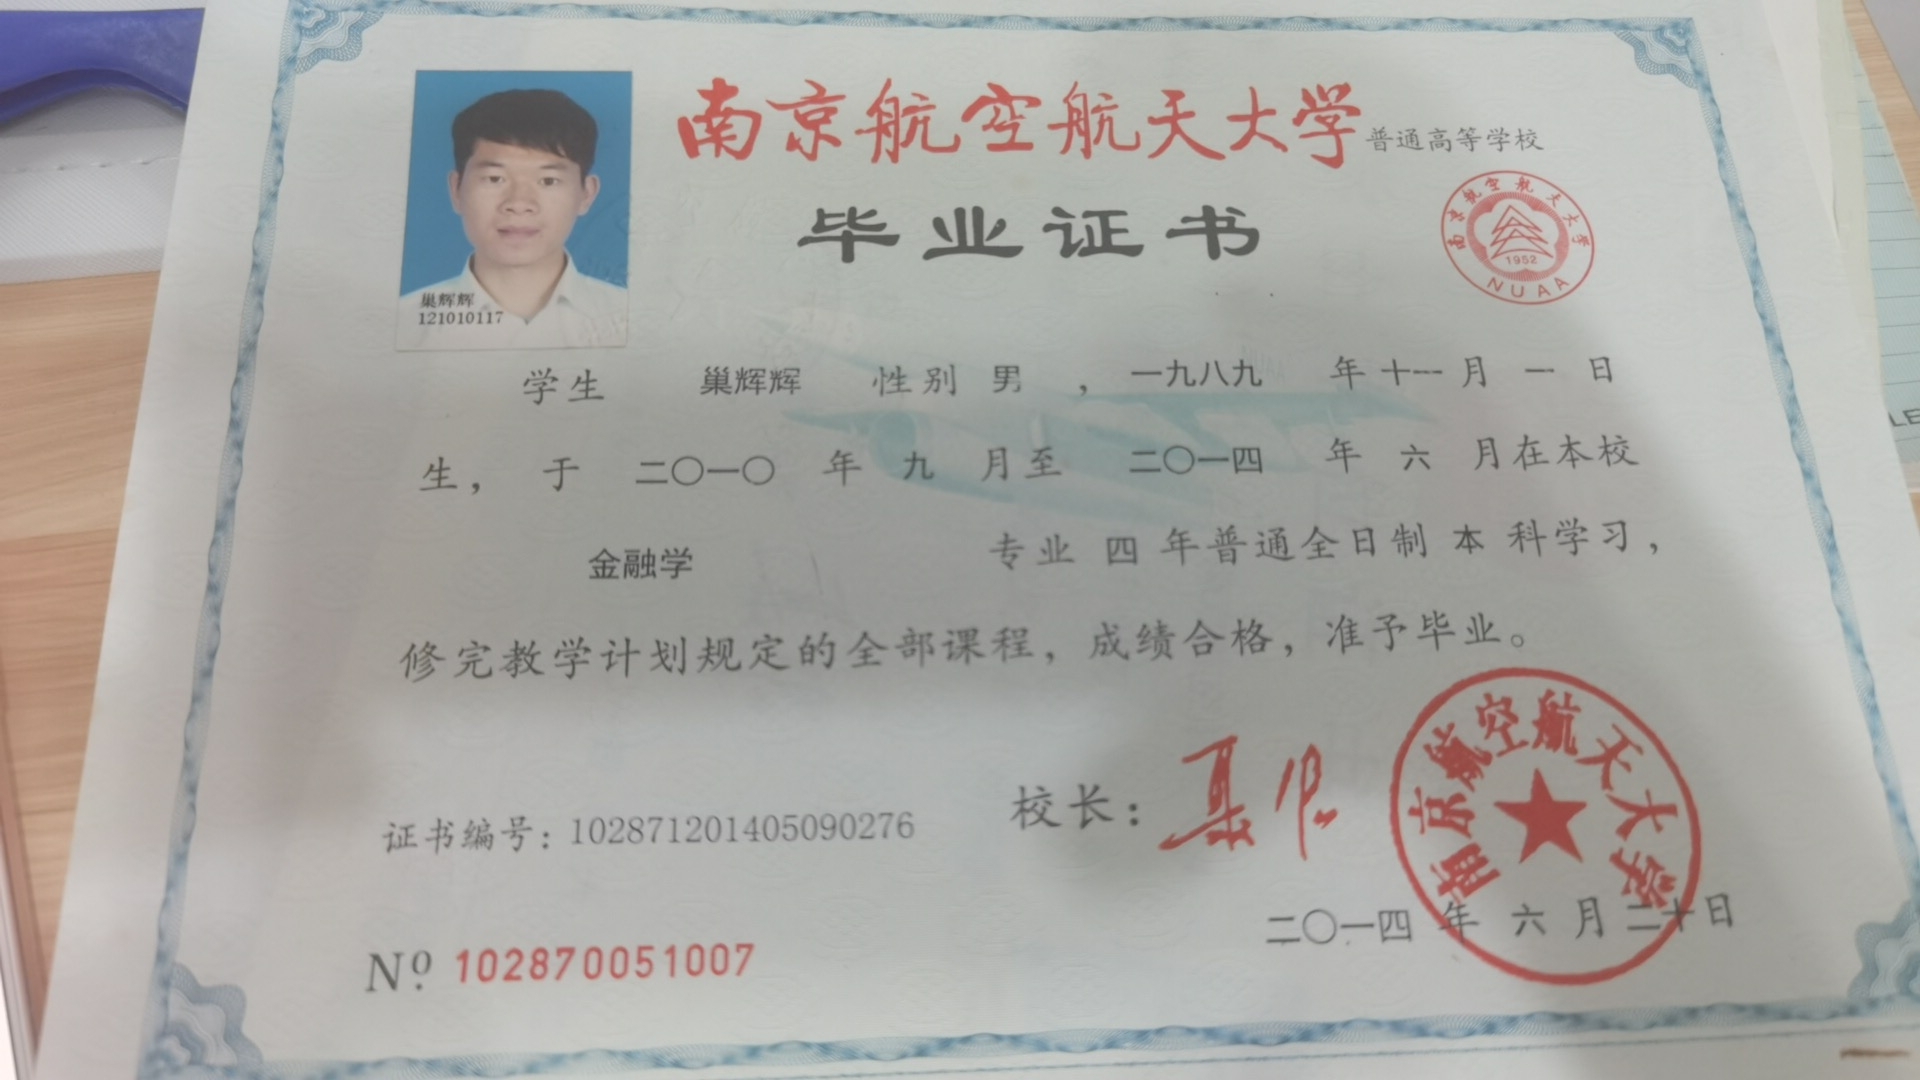 南京航空航天大学普通高等学校
毕业证书
南京航空航天大学
1952
NUAA
巢辉辉
121010117
学生 巢辉辉 性别 男 ，一九八九 年 十一 月 一 日
生， 于 二〇一〇 年 九 月至 二〇一四 年 六 月在本校
金融学 专业 四 年普通全日制 本 科学习，
修完教学计划规定的全部课程，成绩合格，准予毕业。
证书编号：102871201405090276
校长：
南京航空航天大学
二〇一四 年 六 月 二十日
Nº 102870051007